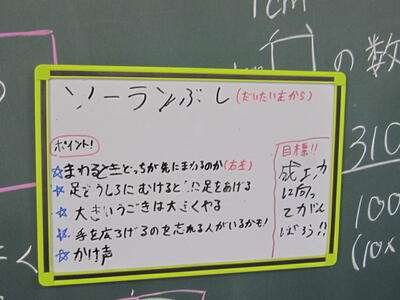 1cm
の数
ソーランぶし(だいたいむから)
ポイント!
☆まわるときどっちが先にまわるのか(右左)
☆足をうしろにむけるときに足をあげる
☆大きいうごきは大きくやる
☆手を広ろげるのを忘れる人がいるかも!
☆かけ声
目標!!
成工力
に向っ
てがん
ばろう!!
310
100
(10×